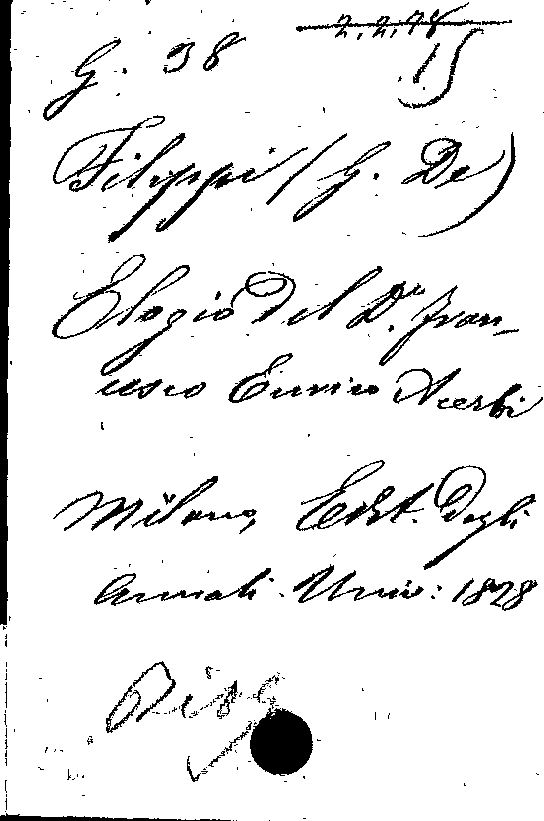 G. 38 2.2.78
15
Filippi (G. De)
Elogio del D.r Fran-
cesco Enrico Acerbi
Milano, Edit. Degli
Annali. Univ: 1828